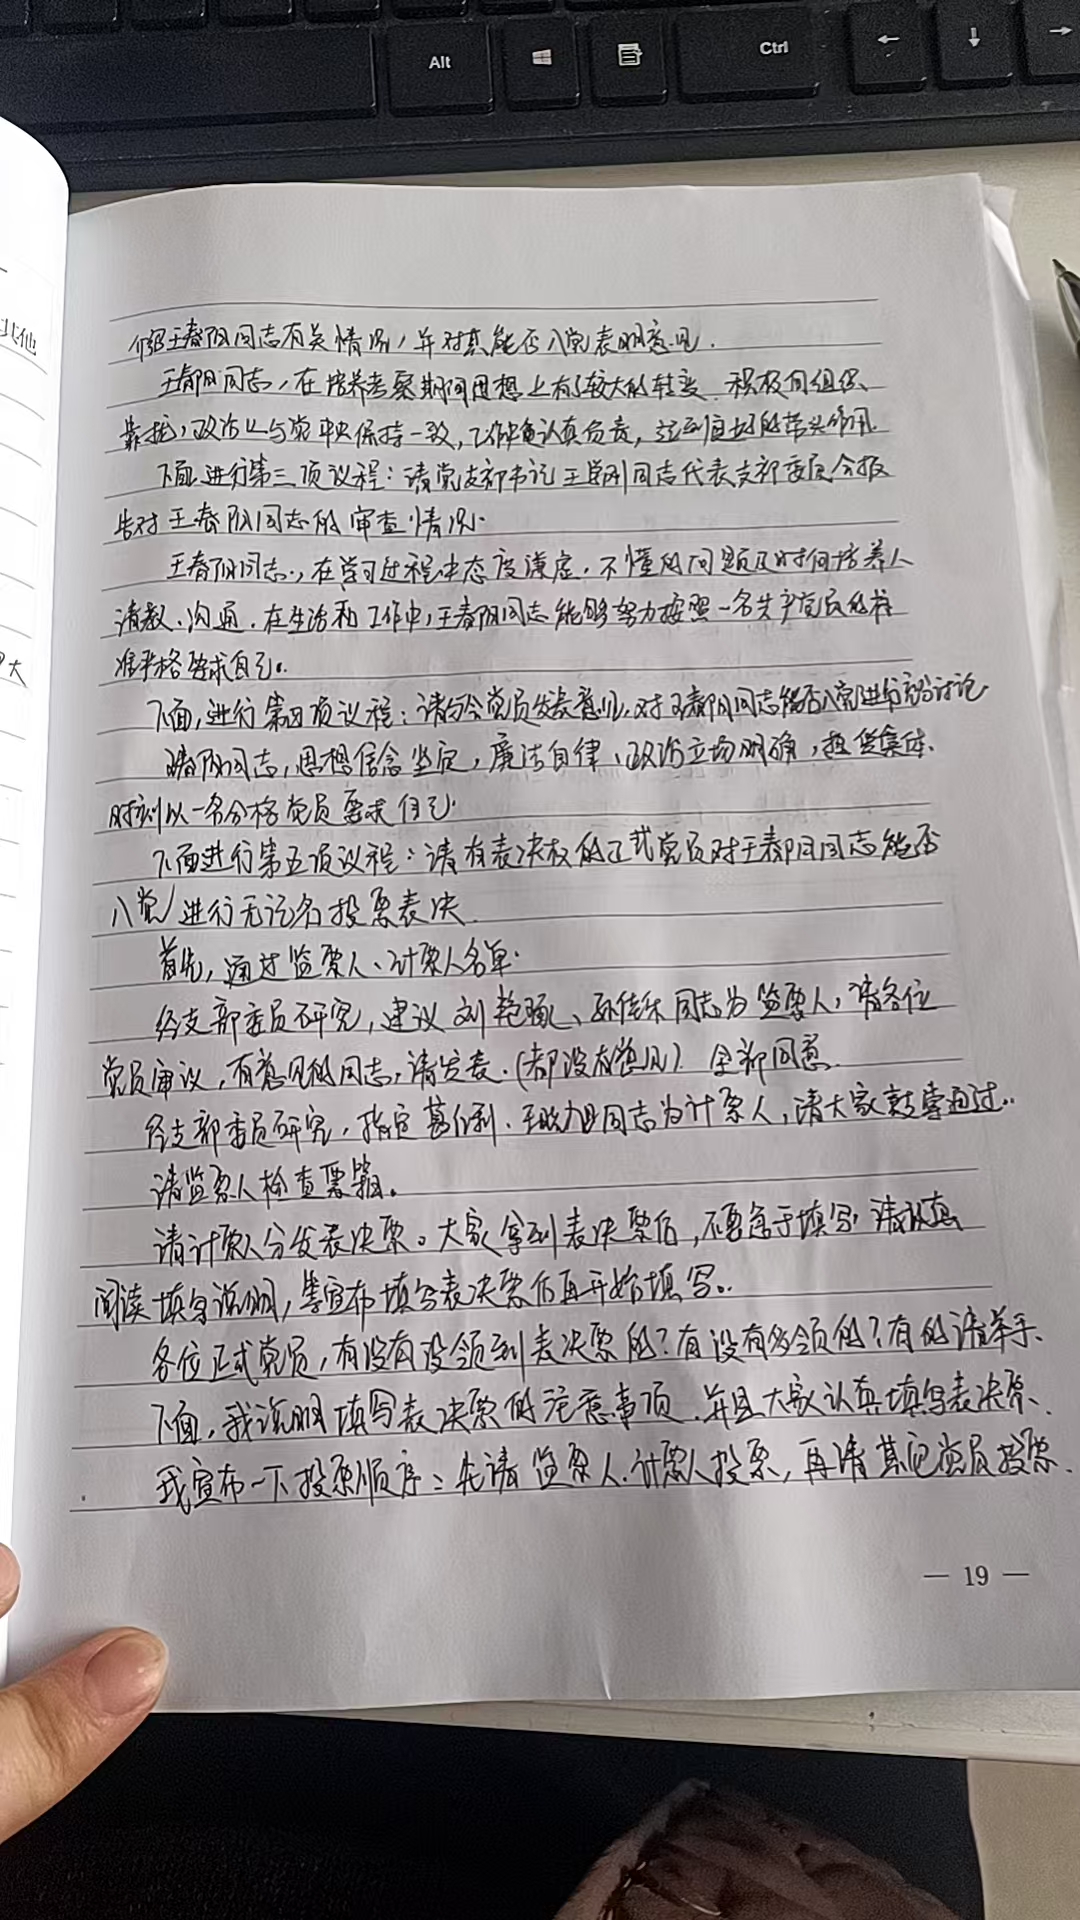 Alt
Ctrl
其他
大
介绍王春阳同志有关情况,并对其能否入党表明意见.
王春阳同志,在培养考察期间思想上有了较大的转变、积极向组织、
靠拢,政治上与党中央保持一致,工作中认真负责,达到良好的带头作用.
下面,进行第三项议程:请党支部书记王同志代表支部委员会报
告对王春阳同志的审查情况.
王春阳同志,在学习过程中态度谦虚,不懂的问题及时向培养人
请教、沟通,在生活和工作中,王春阳同志能够努力按照一名共产党员的标
准严格要求自己.
下面,进行第四项议程:请与会党员发表意见,对王春阳同志能否入党进行充分讨论
春阳同志,思想信念坚定,廉洁自律、政治立场明确,热爱集体、
时刻以一名合格党员要求自己.
下面进行第五项议程:请有表决权的正式党员对王春阳同志能否
入党,进行无记名投票表决.
首先,通过监票人、计票人名单.
经支部委员研究,建议刘、孙同志为监票人,请各位
党员审议,有意见的同志,请发表.(都没有意见)全部同意.
经支部委员研究,指定葛、王同志为计票人,请大家鼓掌通过..
请监票人检查票箱。
请计票人分发表决票。大家拿到表决票后,不要急于填写,请认真
阅读填写说明,等宣布填写表决票后再开始填写。
各位正式党员,有没有没领到表决票的?有没有多领的?有的请举手、
下面,我说明填写表决票的注意事项、并且大家认真填写表决票、
我宣布一下投票顺序:先请监票人、计票人投票,再请其它党员投票.
— 19 —